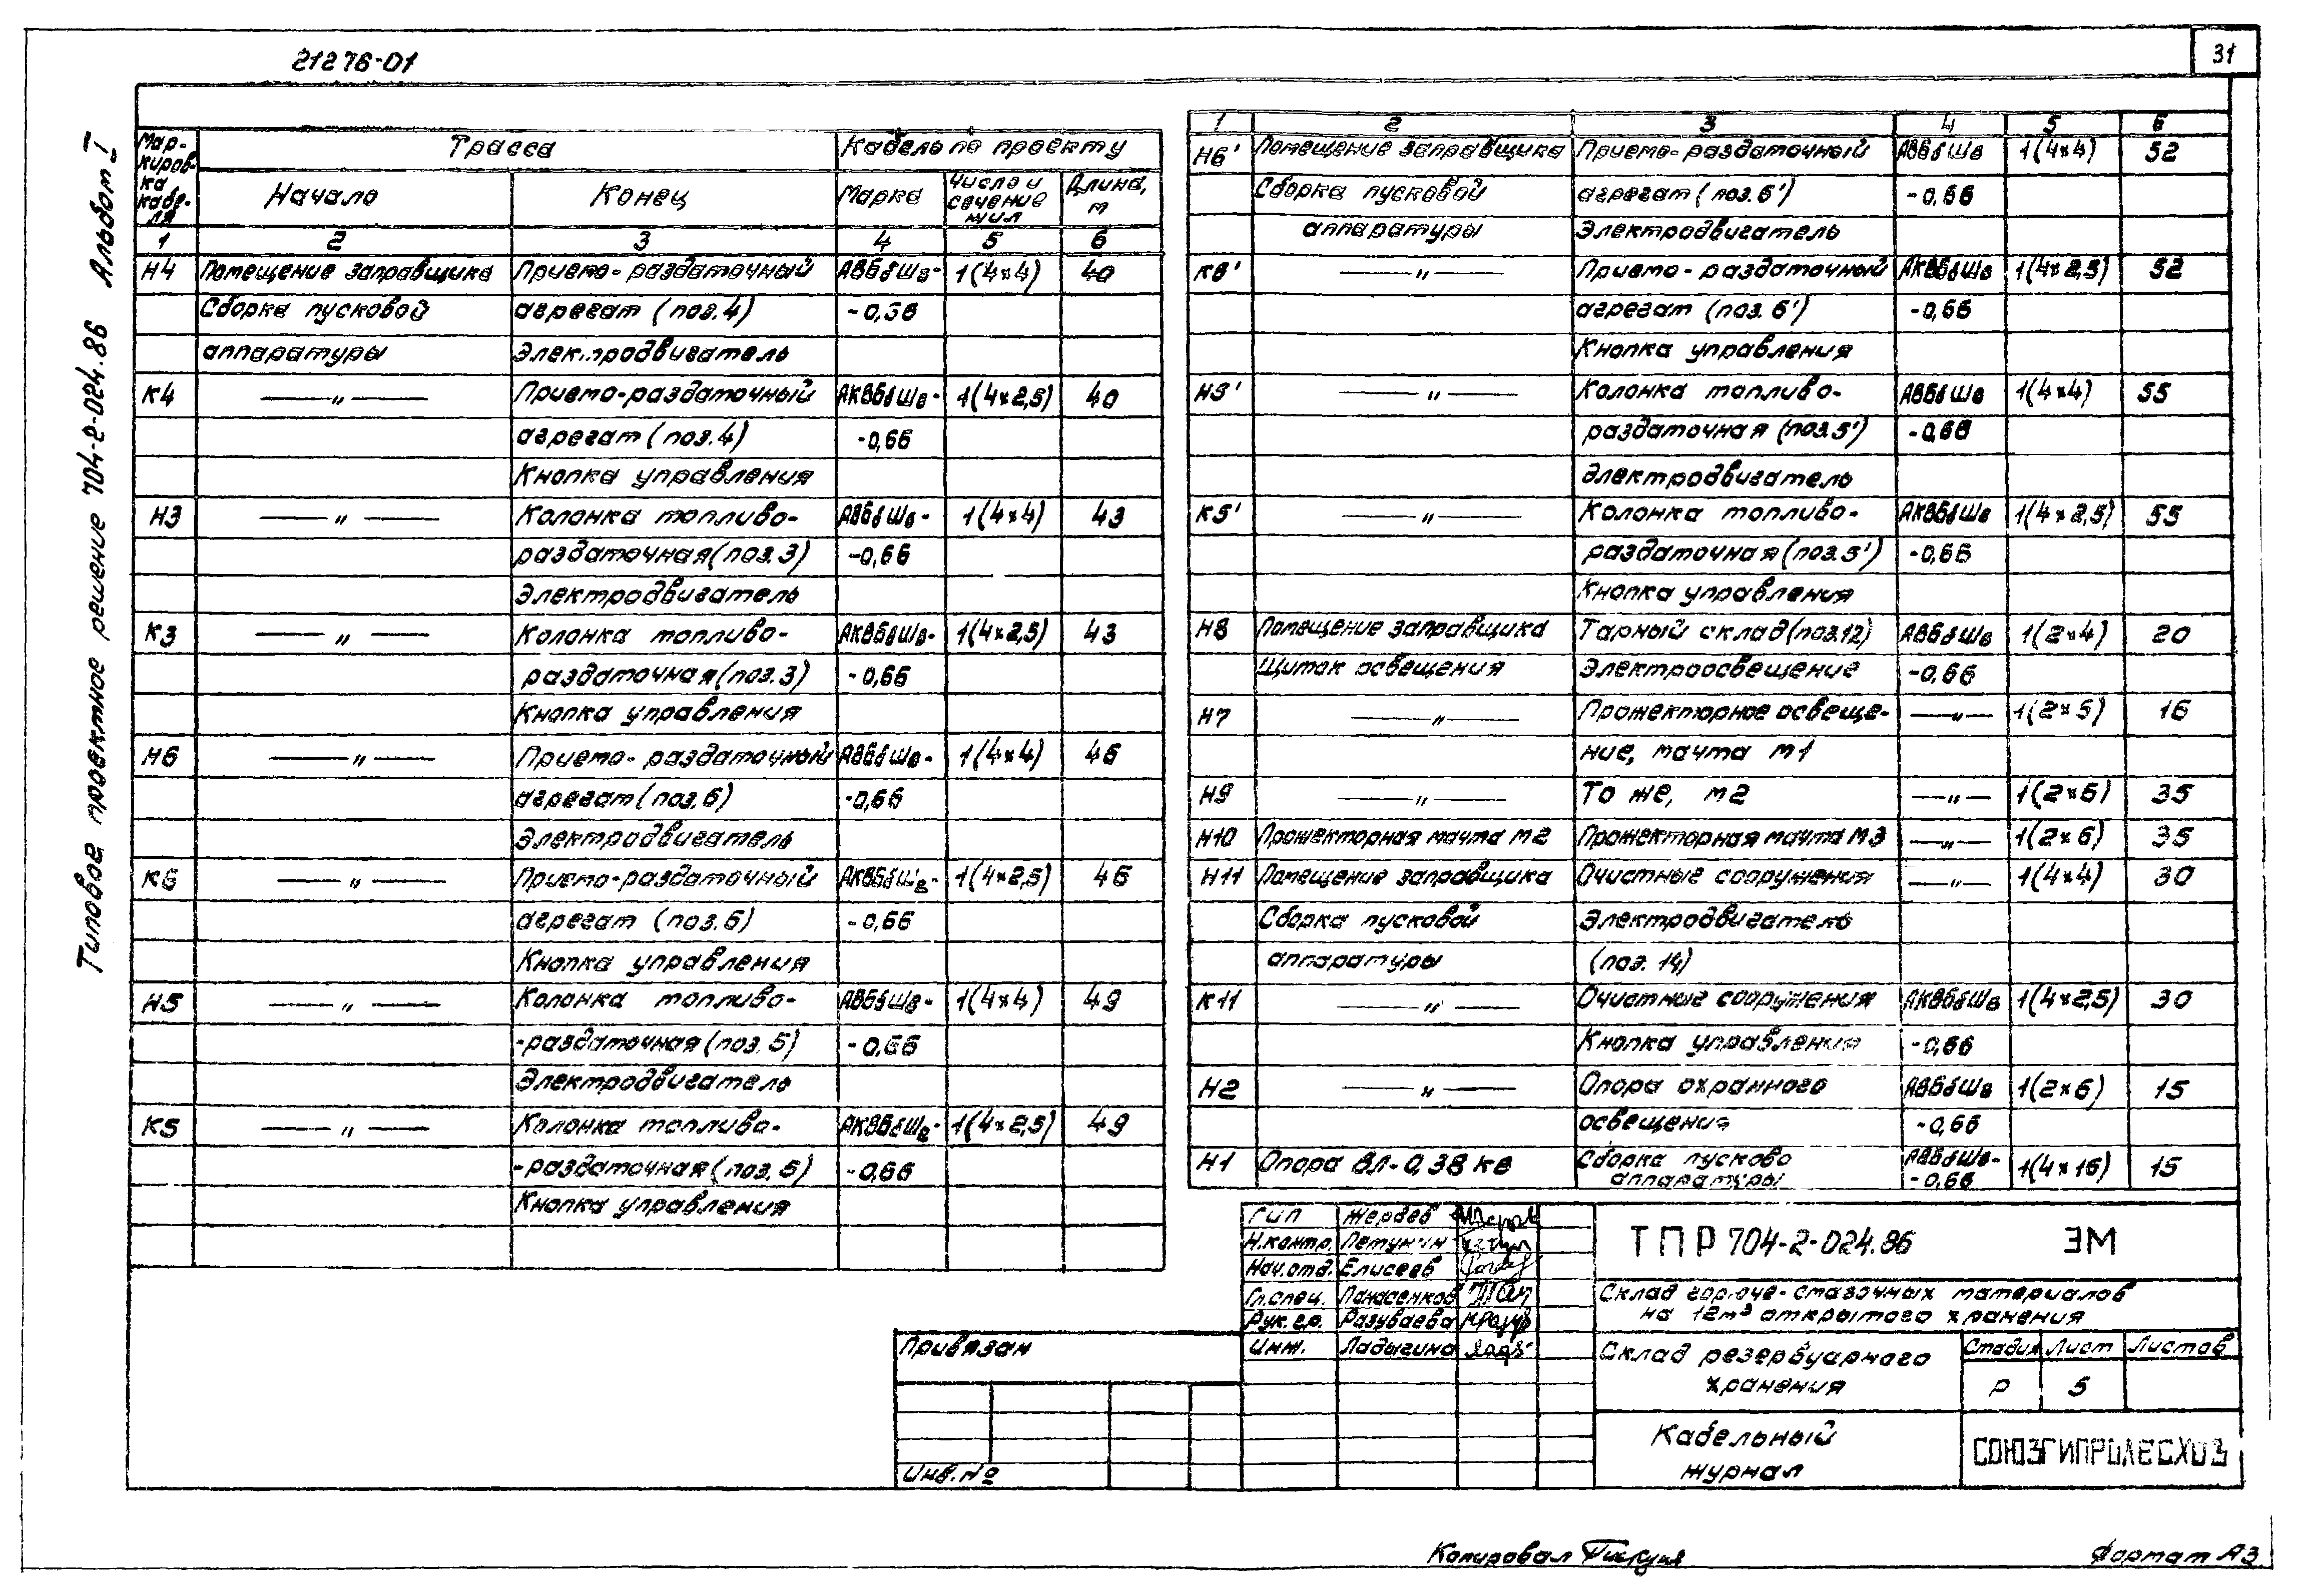 21276-01
31
Типовое проектное решение 704-2-024.86 Альбом I
Мар-
киров-
ка
кабе-
ля
Трасса
Кабель по проекту
Начало
Конец
Марка
Число и
сечение
жил
Длина,
м
1 2 3 4 5 6
Н4 Помещение заправщика Приемо-раздаточный АВБбШв- 1(4×4) 40
Сборка пусковой агрегат (поз.4) -0,66
аппаратуры Электродвигатель
К4 —"— Приемо-раздаточный АКВБбШв- 1(4×2,5) 40
агрегат (поз.4) -0,66
Кнопка управления
Н3 —"— Колонка топливо- АВБбШв- 1(4×4) 43
раздаточная (поз.3) -0,66
Электродвигатель
К3 —"— Колонка топливо- АКВБбШв- 1(4×2,5) 43
раздаточная (поз.3) -0,66
Кнопка управления
Н6 —"— Приемо-раздаточный АВБбШв- 1(4×4) 46
агрегат (поз.6) -0,66
Электродвигатель
К6 —"— Приемо-раздаточный АКВБбШв- 1(4×2,5) 46
агрегат (поз.6) -0,66
Кнопка управления
Н5 —"— Колонка топливо- АВБбШв- 1(4×4) 49
-раздаточная (поз.5) -0,66
Электродвигатель
К5 —"— Колонка топливо- АКВБбШв- 1(4×2,5) 49
-раздаточная (поз.5) -0,66
Кнопка управления
1 2 3 4 5 6
Н6' Помещение заправщика Приемо-раздаточный АВБбШв 1(4×4) 52
Сборка пусковой агрегат (поз.6') -0,66
аппаратуры Электродвигатель
К6' —"— Приемо-раздаточный АКВБбШв 1(4×2,5) 52
агрегат (поз.6') -0,66
Кнопка управления
Н5' —"— Колонка топливо- АВБбШв 1(4×4) 55
раздаточная (поз.5') -0,66
Электродвигатель
К5' —"— Колонка топливо- АКВБбШв 1(4×2,5) 55
раздаточная (поз.5') -0,66
Кнопка управления
Н8 Помещение заправщика Тарный склад (поз.12) АВБбШв 1(2×4) 20
Щиток освещения Электроосвещение -0,66
Н7 —"— Прожекторное освеще- —"— 1(2×6) 16
ние, мачта М1
Н9 —"— То же, М2 —"— 1(2×6) 35
Н10 Прожекторная мачта М2 Прожекторная мачта М3 —"— 1(2×6) 35
Н11 Помещение заправщика Очистные сооружения —"— 1(4×4) 30
Сборка пусковой Электродвигатель
аппаратуры (поз.14)
К11 —"— Очистные сооружения АКВБбШв 1(4×2,5) 30
Кнопка управления -0,66
Н2 —"— Опора охранного АВБбШв 1(2×6) 15
освещения -0,66
Н1 Опора ВЛ-0,38 кв Сборка пусково АВБбШв- 1(4×16) 15
аппаратуры -0,66
ГИП Жердев
Н.контр. Летунин
Нач.отд. Елисеев
Гл.спец. Панасенков
Рук.гр. Разуваева
Инж. Ладыгина
ТПР 704-2-024.86 ЭМ
Склад горюче-смазочных материалов
на 12м³ открытого хранения
Склад резервуарного
хранения
Стадия Лист Листов
Р 5
Кабельный
журнал
СОЮЗГИПРОЛЕСХОЗ
Привязан
Инв.№
Копировал
Формат А3